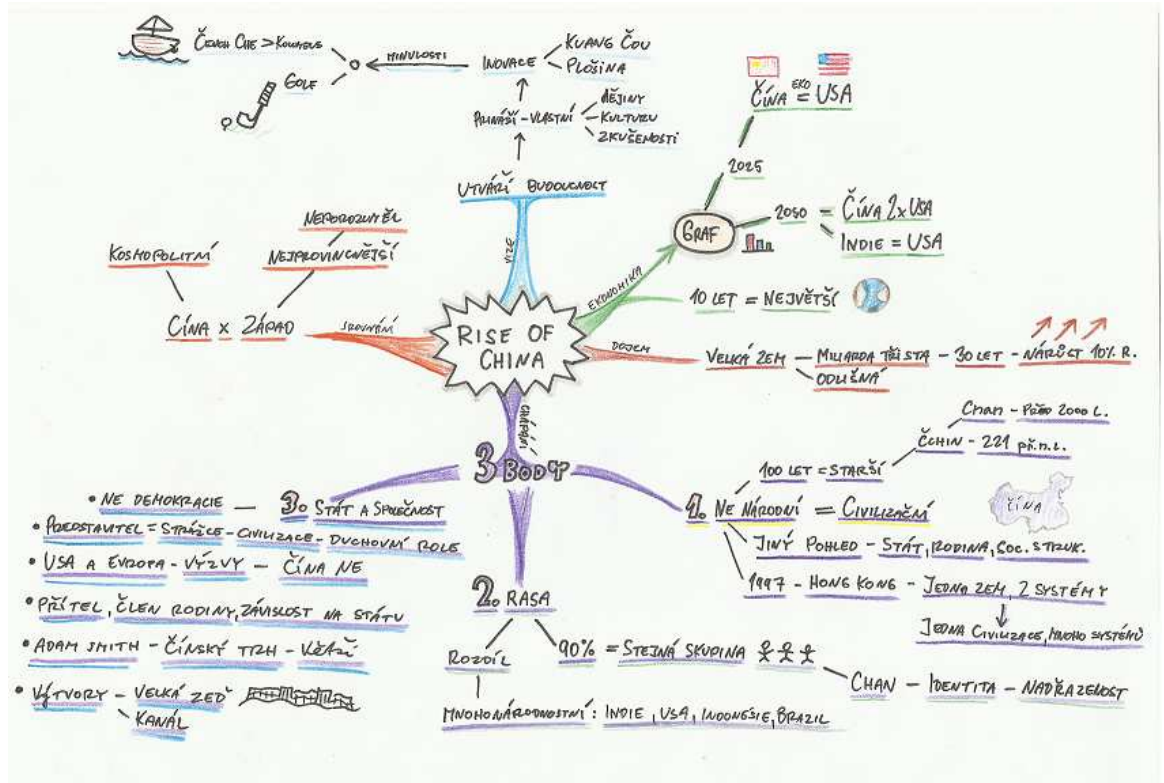 RISE OF CHINA
VIZE
UTVÁŘÍ BUDOUCNOST
PŘINÁŠÍ - VLASTNÍ
DĚJINY
KULTURU
ZKUŠENOSTI
INOVACE
KUANG ČOU
PLOŠINA
MINULOSTI
GOLF
EKONOMIKA
GRAF
2025
ČÍNA EKO = USA
2050 = ČÍNA 2x USA
INDIE = USA
10 LET = NEJVĚTŠÍ
DOJEM
VELKÁ ZEM - MILIARDA TŘI STA - 30 LET - NÁRŮST 10% R.
ODLIŠNÁ
SROVNÁNÍ
ČÍNA x ZÁPAD
KOSMOPOLITNÍ
NEJPROVINCNĚJŠÍ
NEPOROZUMĚL
CHÁPÁNÍ
3 BODY
1. NE NÁRODNÍ = CIVILIZAČNÍ
ČÍNA
100 LET = STARŠÍ
Chan - PŘED 2000 L.
ČCHIN - 221 př.n.l.
JINÝ POHLED - STÁT, RODINA, SOC. STRUK.
1997 - HONG KONG - JEDNA ZEM, 2 SYSTÉMY
JEDNA CIVILIZACE, MNOHO SYSTÉMŮ
2. RASA
ROZDÍL
MNOHONÁRODNOSTNÍ: INDIE, USA, INDONÉSIE, BRAZIL
90% = STEJNÁ SKUPINA
CHAN - IDENTITA - NADŘAZENOST
3. STÁT A SPOLEČNOST
• NE DEMOKRACIE
• PŘEDSTAVITEL = STRÁŽCE - CIVILIZACE - DUCHOVNÍ ROLE
• USA A EVROPA - VÝZVY - ČÍNA NE
• PŘÍTEL, ČLEN RODINY, ZÁVISLOST NA STÁTU
• ADAM SMITH - ČÍNSKÝ TRH - VĚTŠÍ
• VÝTVORY - VELKÁ ZEĎ
KANÁL